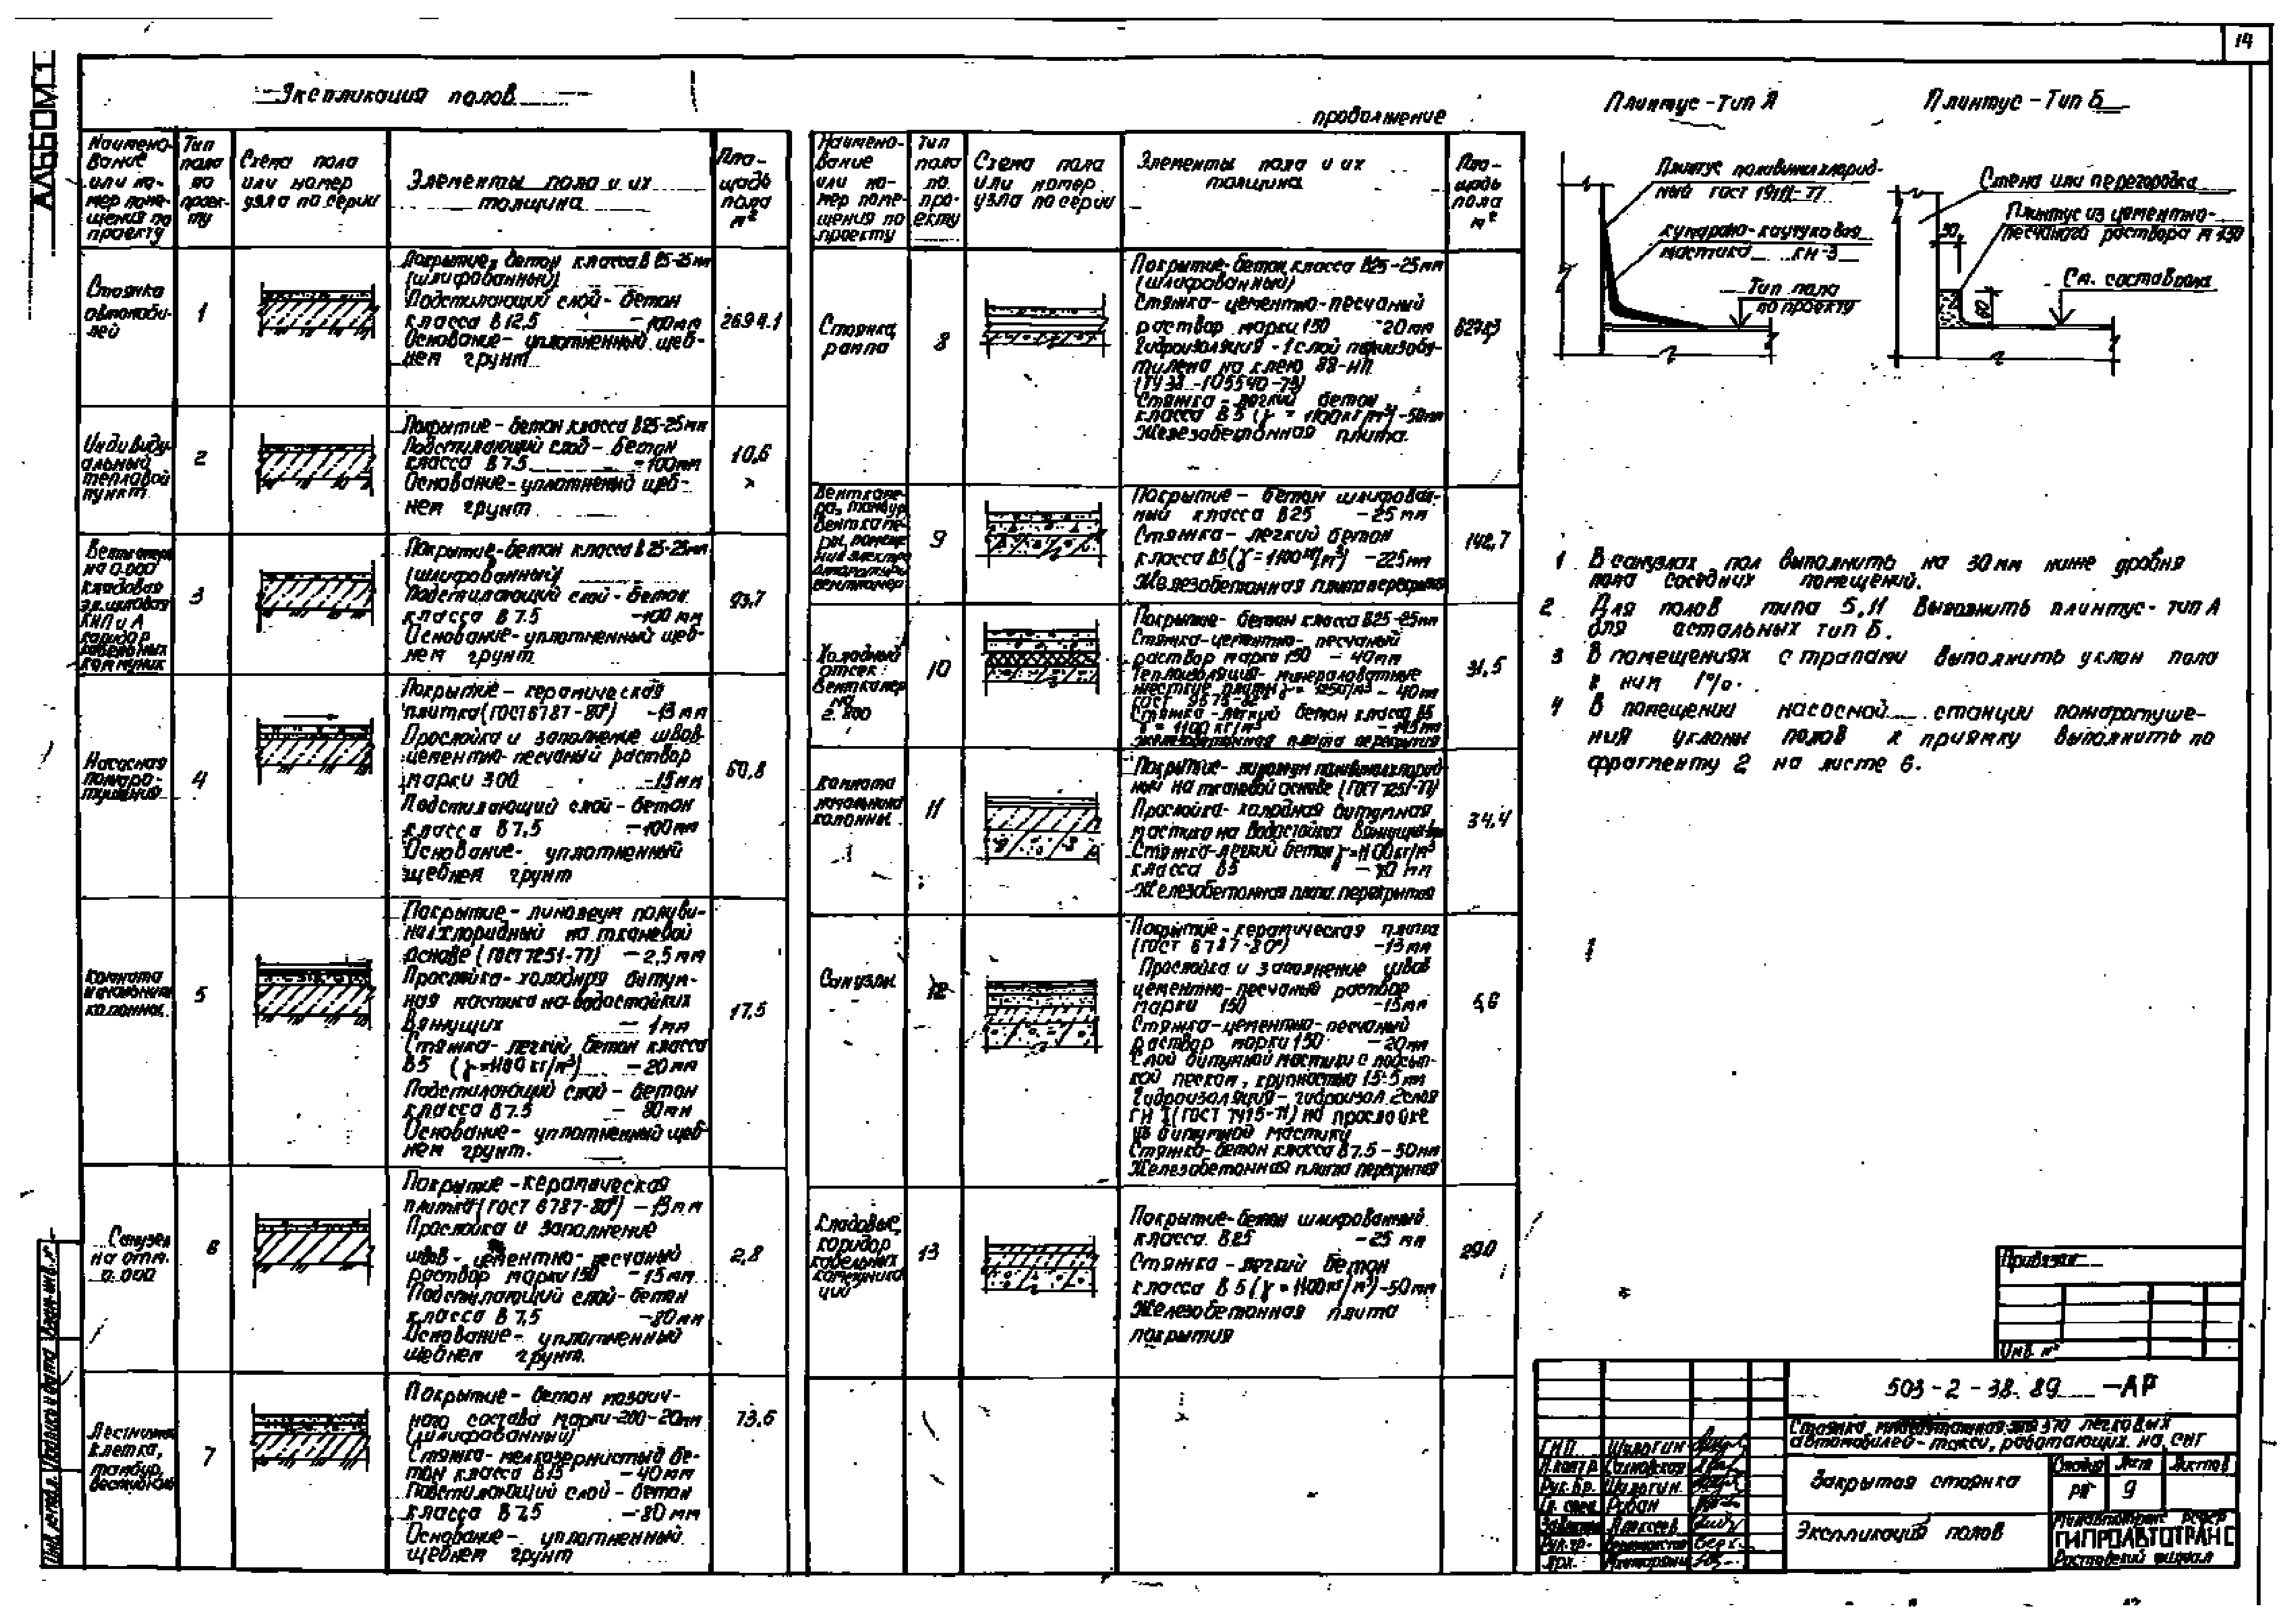 14
АЛЬБОМ 1
Экспликация полов
Наимено-
вание
или но-
мер поме-
щения по
проекту
Тип
пола
по
проек-
ту
Схема пола
или номер
узла по серии
Элементы пола и их
толщина
Пло-
щадь
пола
м²
Стоянка
автомоби-
лей
1
Покрытие, бетон класса В 25-25мм
(шлифованный)
Подстилающий слой - бетон
класса В 12,5 -100мм
Основание- уплотненный щеб-
нем грунт
2694.1
Индивиду-
альный
тепловой
пункт
2
Покрытие - бетон класса В25-25мм
Подстилающий слой - бетон
класса В 7.5 -100мм
Основание- уплотненный щеб-
нем грунт
10,6
на 0.000
кладовая
КИП и А
коридор
кабельных
коммуник
3
Покрытие-бетон класса В 25-25мм
(шлифованный)
Подстилающий слой - бетон
класса В 7.5 -100 мм
Основание-уплотненный щеб-
нем грунт
93,7
Насосная
пожаро-
тушения
4
Покрытие - керамическая
плитка (ГОСТ 6787-80*) -13 мм
Прослойка и заполнение швов-
цементно-песчаный раствор
марки 300 -15мм
Подстилающий слой - бетон
класса В 7,5 -100мм
Основание- уплотненный
щебнем грунт
60,8
Комната
начальника
колонны.
5
Покрытие - линолеум поливи-
нилхлоридный на тканевой
основе (ГОСТ 7251-77) - 2,5мм
Прослойка- холодная битум-
ная мастика на водостойких
вяжущих - 1мм
Стяжка- легкий бетон класса
В5 (γ=1100 кг/м³) - 20мм
Подстилающий слой - бетон
класса В 7.5 - 80мм
Основание- уплотненный щеб-
нем грунт.
17,5
Санузел
на отм.
0.000
6
Покрытие - керамическая
плитка (ГОСТ 6787-80*) - 13мм
Прослойка и заполнение
швов - цементно- песчаный
раствор марки 150 - 15мм
Подстилающий слой- бетон
класса В 7,5 -80мм
Основание- уплотненный
щебнем грунт.
2,8
Лестничная
клетка,
тамбур,
вестибюль
7
Покрытие - бетон мозаич-
ного состава марки-200-20мм
(шлифованный)
Стяжка- мелкозернистый бе-
тон класса В15 - 40мм
Подстилающий слой - бетон
класса В 7.5 -80мм
Основание- уплотненный
щебнем грунт
73,6
продолжение
Наимено-
вание
или но-
мер поме-
щения по
проекту
Тип
пола
по
про-
екту
Схема пола
или номер
узла по серии
Элементы пола и их
толщина
Пло-
щадь
пола
м²
Стоянка,
рампа
8
Покрытие- бетон класса В25-25мм
(шлифованный)
Стяжка- цементно-песчаный
раствор марки 150 -20мм
Гидроизоляция - 1 слой полиизобу-
тилена на клею 88-НП
Стяжка - легкий бетон
класса В 5 (γ = 1100 кг/м³)-50мм
Железобетонная плита.
Венткаме-
ра, тамбур
9
Покрытие - бетон шлифован-
ный класса В25 -25мм
Стяжка- легкий бетон
класса В5 (γ = 1100 кг/м³) -225мм
Железобетонная плита перекрытия
142,7
Холодный
отсек
венткамер
на
2.800
10
Покрытие- бетон класса В25-25мм
Стяжка-цементно- песчаный
раствор марки 150 - 40мм
Теплоизоляция- минераловатные
жесткие плиты - 40мм
ГОСТ 9573-82
Стяжка -легкий бетон класса В5
Железобетонная плита перекрытия
31,5
Комната
начальника
колонны.
11
Покрытие- линолеум поливинилхлорид-
ный на тканевой основе (ГОСТ 7251-77)
Прослойка- холодная битумная
мастика на водостойких вяжущих
Стяжка-легкий бетон γ=1100кг/м³
класса В5
Железобетонная плита перекрытия
34,4
Санузлы
12
Покрытие-керамическая плитка
(ГОСТ 6787-80*) -13мм
Прослойка и заполнение швов
цементно-песчаный раствор
марки 150 -15мм
Стяжка-цементно-песчаный
раствор марки 150 -20мм
Слой битумной мастики с посып-
кой песком, крупностью 1.5-5мм
Гидроизоляция- гидроизол 2слоя
на прослойке
из битумной мастики
Стяжка-бетон класса В7.5-50мм
Железобетонная плита перекрытия
5,6
Кладовые,
коридор
кабельных
коммуника
ций
13
Покрытие-бетон шлифованный
класса В25 -25 мм
Стяжка - легкий бетон
класса В 5 (γ = 1100кг/м³)-50мм
Железобетонная плита
покрытия
Плинтус -Тип А
Плинтус поливинилхлорид-
ный ГОСТ 19111-77
Кумароно-каучуковая
мастика КН-3
Тип пола
по проекту
Плинтус -Тип Б
Стена или перегородка
Плинтус из цементно-
песчаного раствора М 150
См. состав пола
1 В санузлах пол выполнить на 30 мм ниже уровня
пола соседних помещений.
2 Для полов типа 5,11 выполнить плинтус- тип А
для остальных тип Б.
3 В помещениях с трапами выполнить уклон пола
к ним 1%.
4 В помещении насосной станции пожаротуше-
ния уклоны полов к приямку выполнить по
фрагменту 2 на листе 6.
Привязан
Инв. №
503-2-38.89 -АР
370 легковых
автомобилей-такси, работающих на СНГ
ГИП Шулогин
Н.контр.
Рук.бр. Шулогин
Гл. спец.
Алексеев
Рук.гр.
Арх.
Закрытая стоянка
Стадия Лист Листов
РП 9
Экспликация полов
ГИПРОАВТОТРАНС
Ростовский филиал
Инв. № подл. Подпись и дата Взам. инв. №